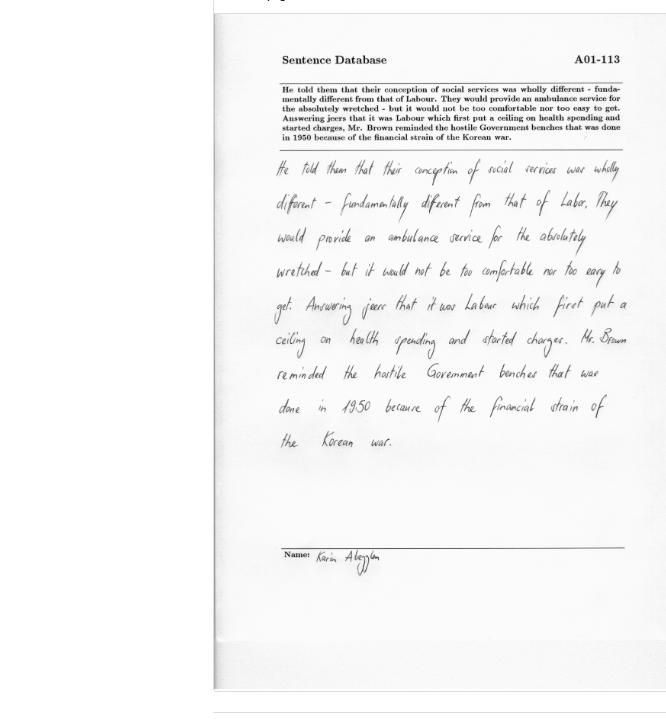 Sentence Database A01-113
He told them that their conception of social services was wholly different - funda-
mentally different from that of Labour. They would provide an ambulance service for
the absolutely wretched - but it would not be too comfortable nor too easy to get.
Answering jeers that it was Labour which first put a ceiling on health spending and
started charges, Mr. Brown reminded the hostile Government benches that was done
in 1950 because of the financial strain of the Korean war.
He told them that their conception of social services was wholly
different - fundamentally different from that of Labor. They
would provide an ambulance service for the absolutely
wretched - but it would not be too comfortable nor too easy to
get. Answering jeers that it was Labour which first put a
ceiling on health spending and started charges. Mr. Brown
reminded the hostile Government benches that was
done in 1950 because of the financial strain of
the Korean war.
Name: Karin